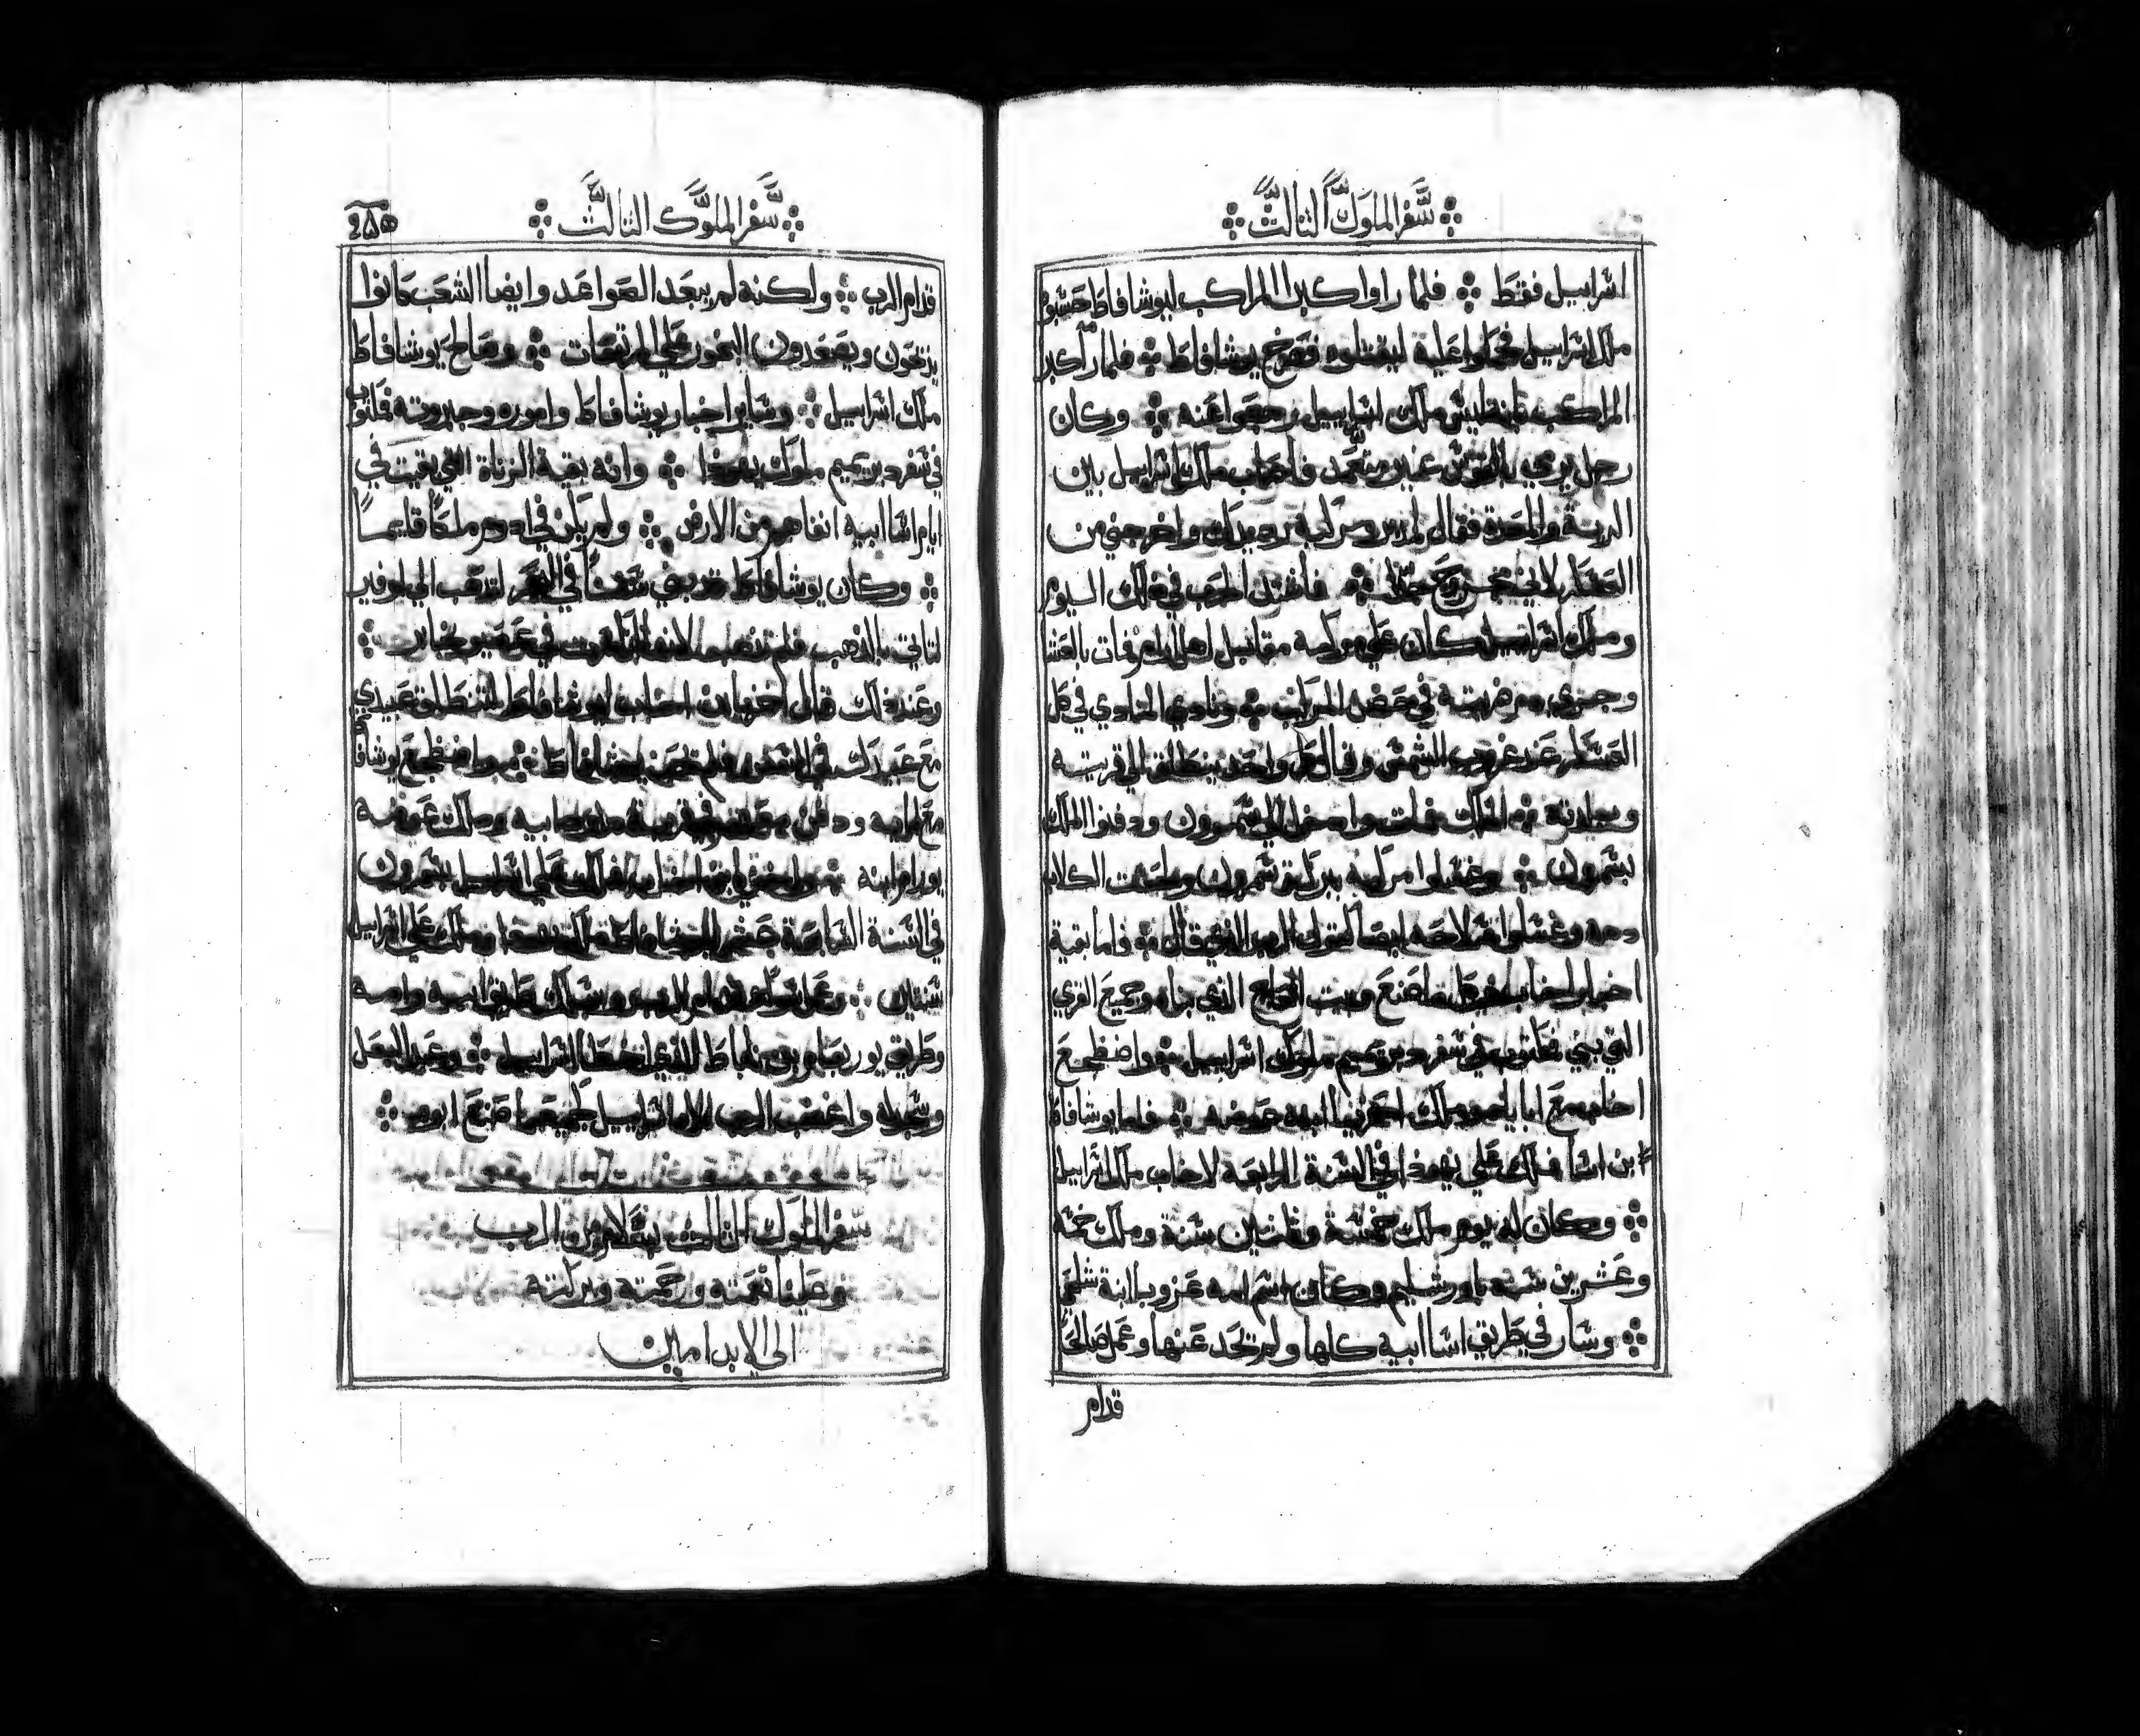 سفر الملوك الثالث
اسراييل فقط فلما راوا اكبرا المراكب ليوشافاط حسبوه
ملك اسراييل فحملوا عليه ليقتلوه فصرخ يوشافاط فلما راكبر
المراكب ملك اسراييل رجعوا عنه وكان
رجل يرمي بالقوس غير متعمد فاصاب ملك اسراييل بين
الرية والمعدة فقال واخرجني من
العسكر لاني فاشتد الحرب في ذلك اليوم
وملك اسراييل كان علي مركبه مقابيل اهل ارام فات بالعشا
وجري دم في حضن المركب ونادي المنادي في كل
العسكر عند غروب الشمس وقال كل واحد ينطلق الي قريته
وبلدته الملك مات الي شمرون ودفنوا الملك
بشمرون وغسلوا مركبه ببركة شمرون ولحست الكلاب
دمه وغسلوا سلاحه ايضا كقول الرب الذي قال فاما بقية
اخبار اخاب وكل ما صنع وبيت العاج الذي بناه وجميع القري
التي بني في سفر دبرتميم ملوك اسراييل واضطجع
اخاب مع ابايه وملك احزيا ابنه عوضه فاما يوشافاط
بن اسا فملك علي يهوذا في السنة الرابعة لاخاب ملك اسراييل
وكان له يوم ملك خمسة وثلثين سنة وملك خمسة
وعشرين سنه باورشليم وكان اسم امه عزوبا ابنة شلحي
وسار في طريق اسا ابيه كلها ولم تحد عنها وعمل صالحا
قدام
سفر الملوك الثالث
٢٨٥
قدام الرب ولكنه لم يبعد الصواعد وايضا الشعب كانوا
يذبحون ويصعدون البخور علي المرتفعات وصالح يوشافاط
ملك اسراييل وساير اخبار يوشافاط واموره وجبروته مكتوب
في سفر دبرتميم ملوك يهوذا وانه بقية الزناة التي بقيت في
ايام اسا ابيه انفاهم من الارض ولم يكن في ادوم ملكا قايما
وكان يوشافاط قد بني سفنا في البحر لتذهب الي اوفير
لتاتي بالذهب فلم تذهب لانها انكسرت في عصيون جابر
وعند ذلك قال احزيا بن اخاب ليوشافاط لتنطلق عبيدي
مع عبيدك في السفن فلم يوشافاط واضطجع يوشافاط
مع ابايه ودفن معهم في قرية داود ابيه وملك عوضه
يورام ابنه واحزيا بن اخاب ملك علي اسراييل بشمرون
في السنة السابعة عشر ليوشافاط ملك يهوذا وملك علي اسراييل
سنتين وعمل سوا قدام الرب وسلك طريق ابيه وامه
وطريق يوربعام بن ناباط الذي اخطا اسراييل وعبد البعل
وسجد له واغضب الرب الاه اسراييل كجميع ما صنع ابوه
سفر الملوك الثالث بسلام من الرب
وعلينا نعمته ورحمته وبركته
الي الابد امين